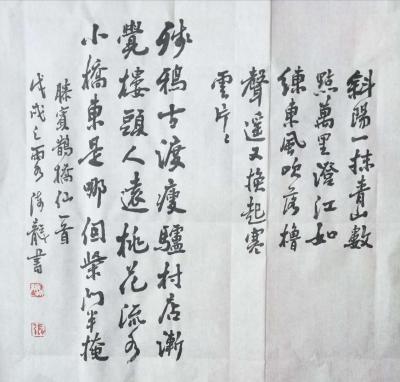 斜陽一抹青山數
點萬里澄江如
練東風吹落櫓
聲遥又換起寒
雲片〻
殘鴉古渡瘦驢村店漸
覺樓頭人遠桃花流水
小橋東是哪個柴門半掩
滕賓鵲橋仙一首
戊戌之龍書